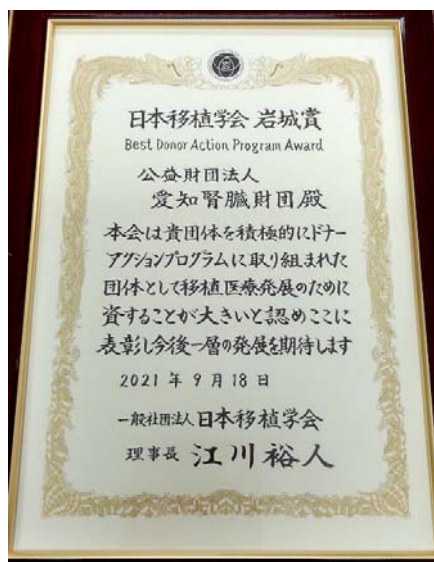 日本移植学会 岩城賞
Best Donor Action Program Award
公益財団法人
愛知腎臓財団殿
本会は貴団体を積極的にドナー
アクションプログラムに取り組まれた
団体として移植医療発展のために
資することが大きいと認めここに
表彰し今後一層の発展を期待します
2021 年 9 月 18 日
一般社団法人日本移植学会
理事長 江川裕人